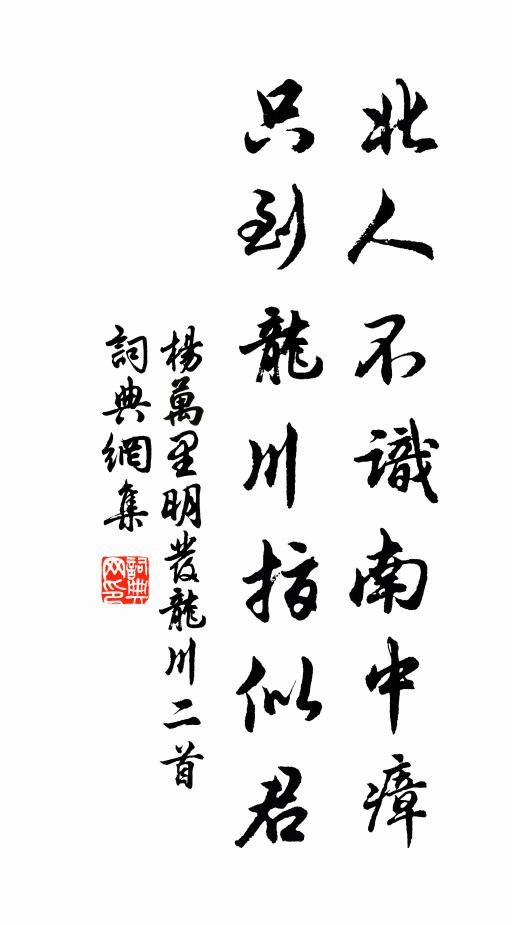 北人不識南中瘴
只到龍川指似君
楊萬里明發龍川二首
詞典網集
詞典網印